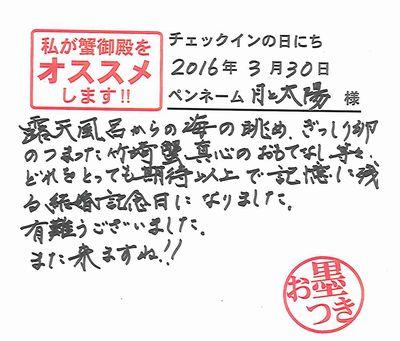 私が蟹御殿を
オススメ
します!!
チェックインの日にち
2016年 3月30日
ペンネーム 月と太陽 様
露天風呂からの海の眺め、ぎっしり卵
のつまった竹崎蟹、真心のおもてなし等々、
どれをとっても期待以上で記憶に残
る結婚記念日になりました。
有難うございました。
また来ますね!!
お墨つき